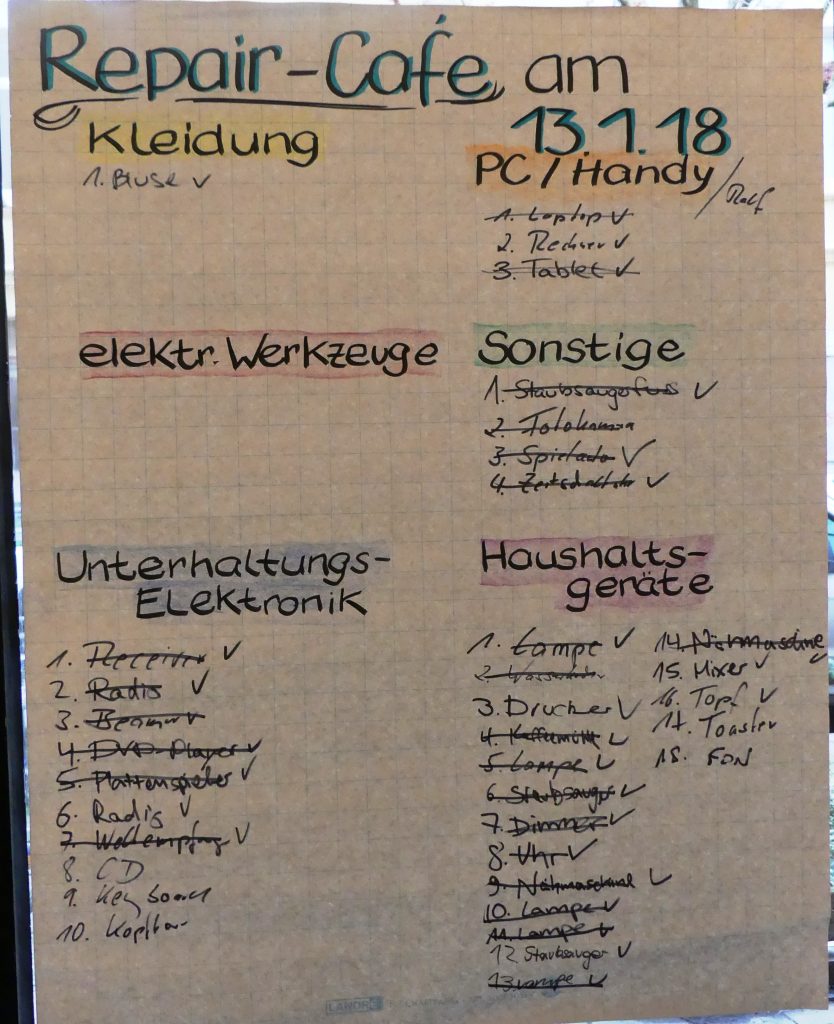 Repair-Café am
13.1.18
Kleidung
1. Bluse ✓
PC/Handy / Ralf
1. Laptop ✓
2. Rechner ✓
3. Tablet ✓
elektr. Werkzeuge
Sonstige
1. Staubsaugerfuss ✓
2. Fotokamera
3. Spielauto ✓
4. Zeitschaltuhr ✓
Unterhaltungs-
Elektronik
1. Receiver ✓
2. Radio ✓
3. Beamer ✓
4. DVD-Player ✓
5. Plattenspieler ✓
6. Radio ✓
7. Weltempfang ✓
8. CD
9. Keyboard
10.
Haushalts-
geräte
1. Lampe ✓
2.
3. Drucker ✓
4. ✓
5. Lampe ✓
6. Staubsauger ✓
7. Dimmer ✓
8. Uhr ✓
9. Nähmaschine ✓
10. Lampe ✓
11. Lampe ✓
12 Staubsauger ✓
13. Lampe ✓
14. Nähmaschine ✓
15. Mixer ✓
16. Topf ✓
17. Toaster
18. FÖN